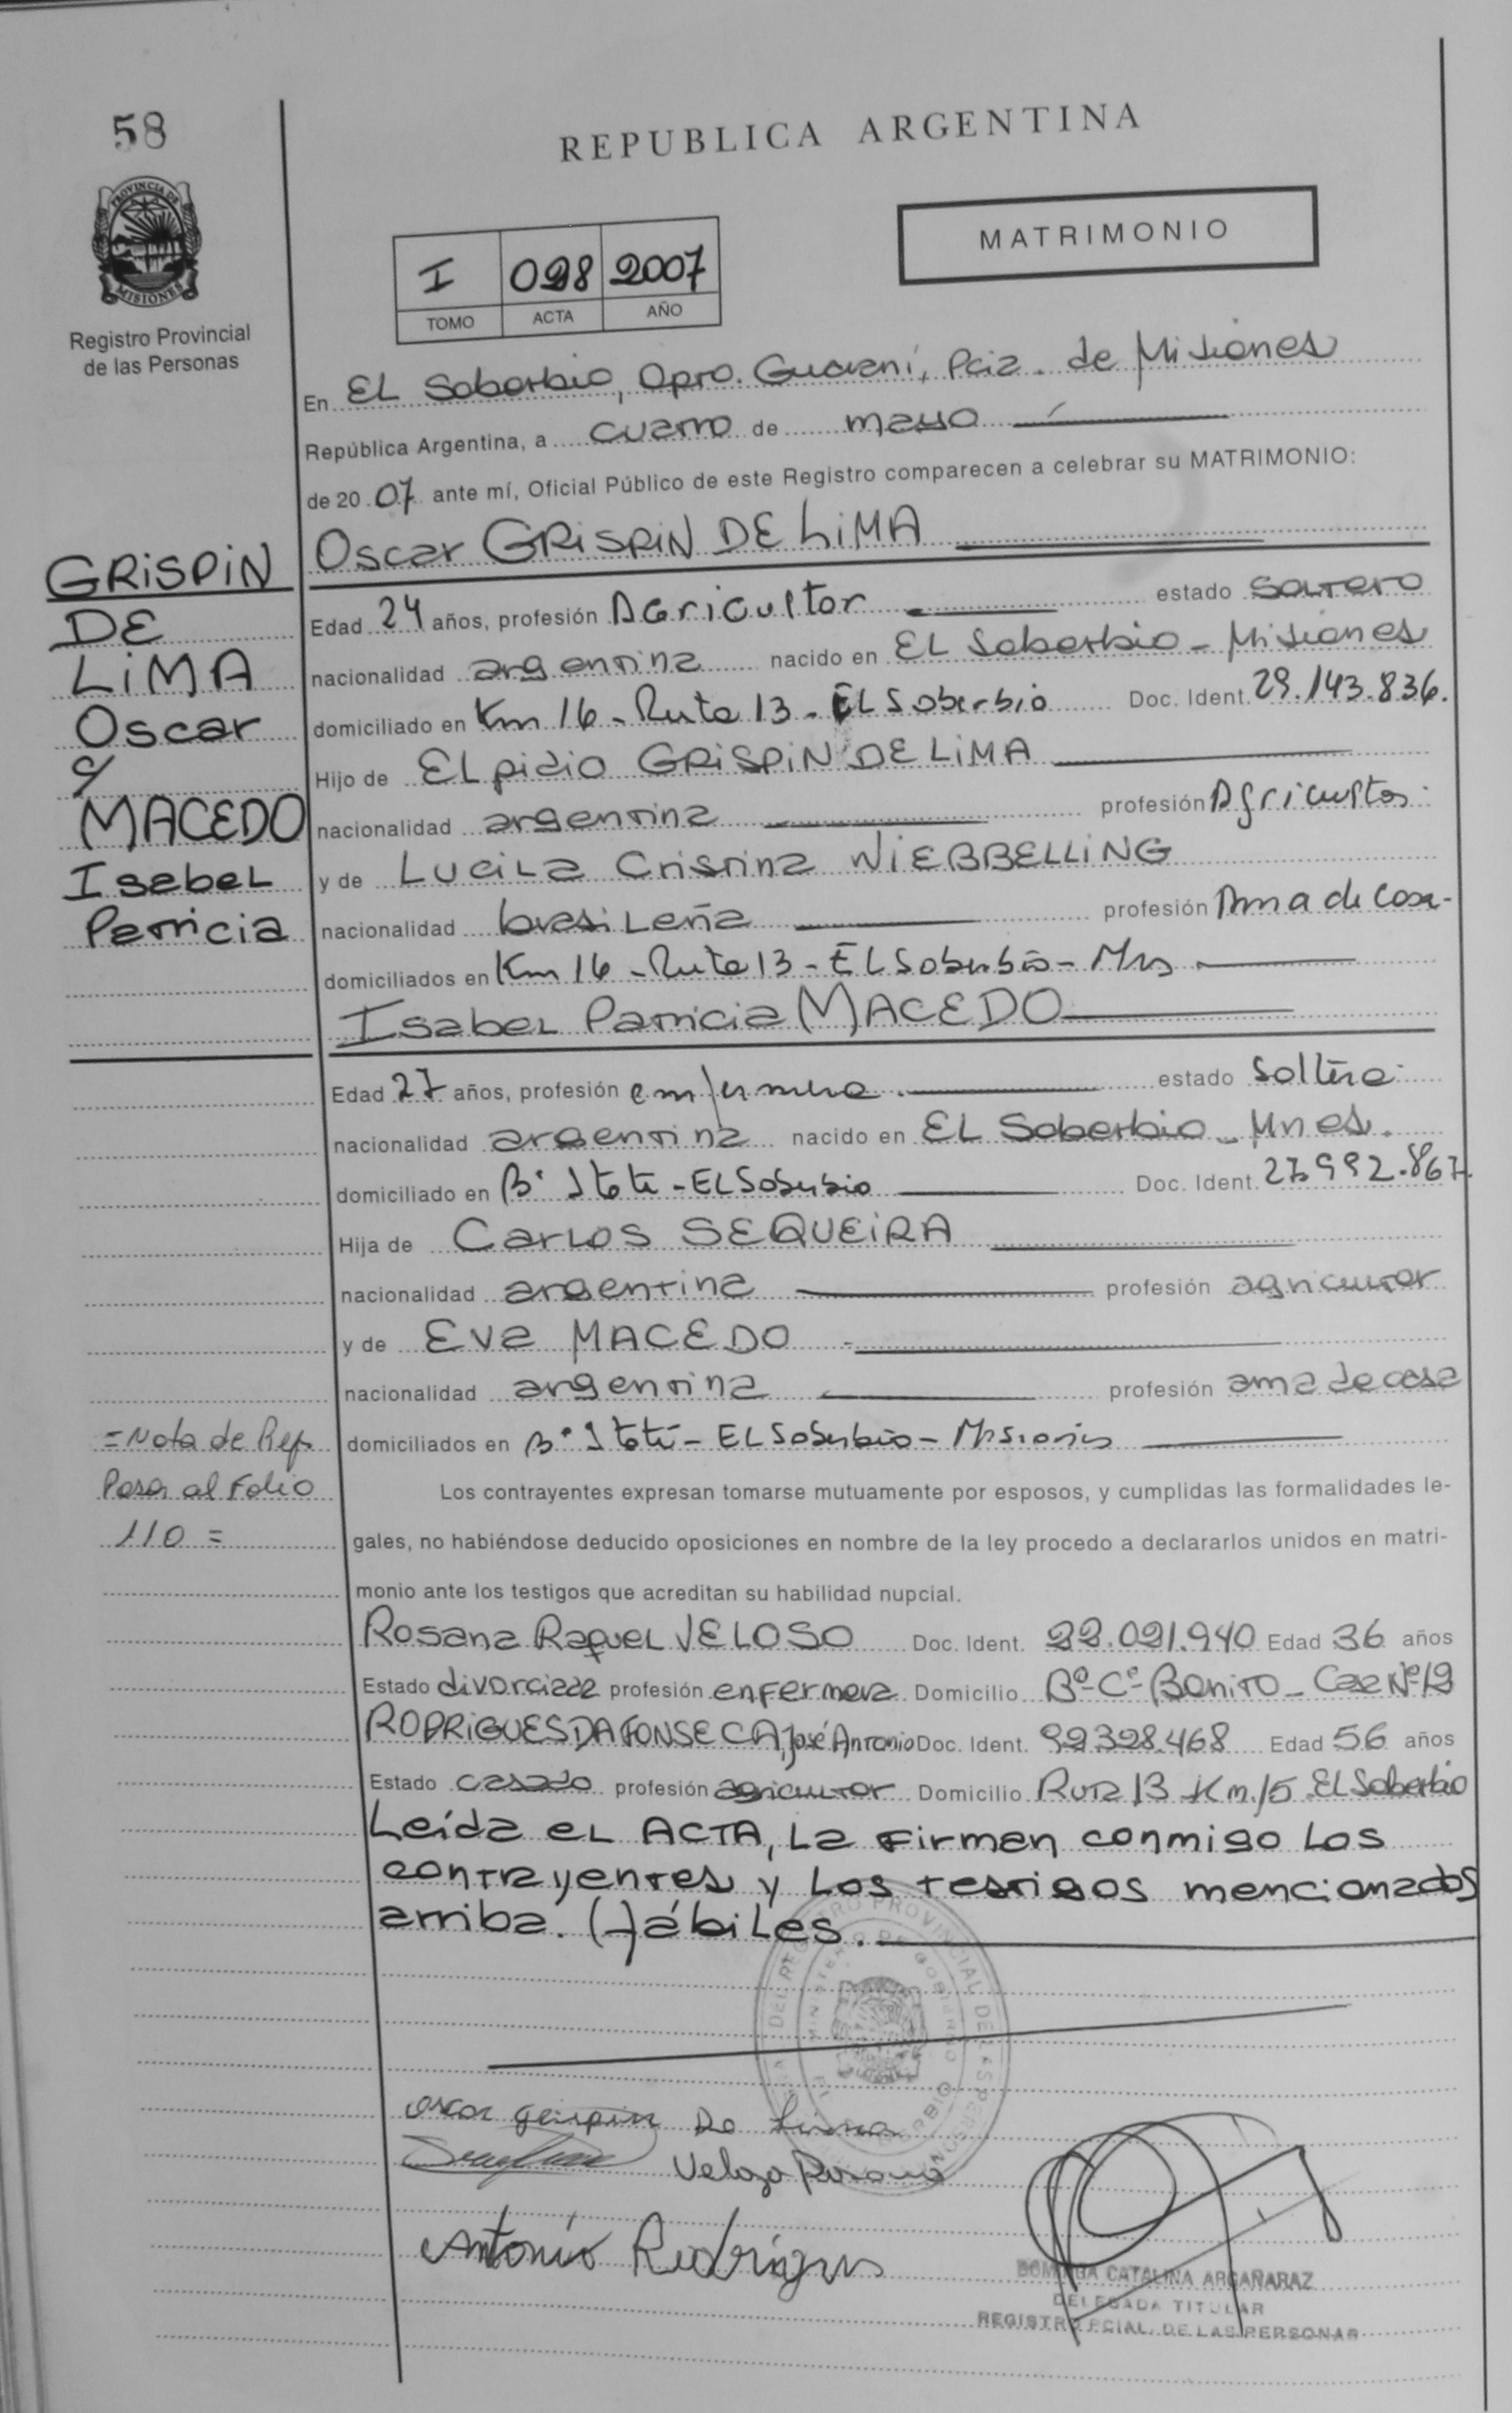 58
REPUBLICA ARGENTINA
PROVINCIA DE
MISIONES
MATRIMONIO
I 028 2007
TOMO ACTA AÑO
Registro Provincial
de las Personas
En EL Soberbio, Dpro. Guaraní, Pcia. de Misiones
República Argentina, a cuatro de mayo
de 2007 ante mí, Oficial Público de este Registro comparecen a celebrar su MATRIMONIO:
Oscar GRISPIN DE LIMA
GRISPIN
DE
LIMA
Oscar
c/
MACEDO
Isabel
Patricia
Edad 24 años, profesión Agricultor estado soltero
nacionalidad argentina nacido en EL Soberbio - Misiones
domiciliado en Km 16 - Ruta 13 - EL Soberbio Doc. Ident. 29.143.836.
Hijo de ELpidio GRISPIN DE LIMA
nacionalidad argentina profesión Agricultor
y de Lucila Cristina WIEBBELLING
nacionalidad brasileña profesión Ama de Casa-
domiciliados en Km 16 - Ruta 13 - EL Soberbio - Mns
Isabel Patricia MACEDO
Edad 27 años, profesión enfermera estado soltera
nacionalidad argentina nacido en EL Soberbio - Mnes.
domiciliado en B° Itati - EL Soberbio Doc. Ident. 27.992.867.
Hija de Carlos SEQUEIRA
nacionalidad argentina profesión agricultor
y de Eva MACEDO
nacionalidad argentina profesión ama de casa
domiciliados en B° Itatí - EL Soberbio - Misiones
= Nota de Ref.
Pasa al Folio
110 =
Los contrayentes expresan tomarse mutuamente por esposos, y cumplidas las formalidades le-
gales, no habiéndose deducido oposiciones en nombre de la ley procedo a declararlos unidos en matri-
monio ante los testigos que acreditan su habilidad nupcial.
Rosana Raquel VELOSO Doc. Ident. 22.021.940 Edad 36 años
Estado divorciada profesión enfermera Domicilio Bº Cº Bonito - Casa Nº 19
RODRIGUES DA FONSECA, José Antonio Doc. Ident. 92328.468 Edad 56 años
Estado casado profesión agricultor Domicilio Ruta 13 Km. 15 El Soberbio
Leída el ACTA, La Firman conmigo Los
contrayentes y Los testigos mencionados
arriba. Hábiles.
Oscar Grispin De Lima
Veloso Rosana
Antonio Rodrigues
DOMINGA CATALINA ARGAÑARAZ
DELEGADA TITULAR
REGISTRO PCIAL. DE LAS PERSONAS